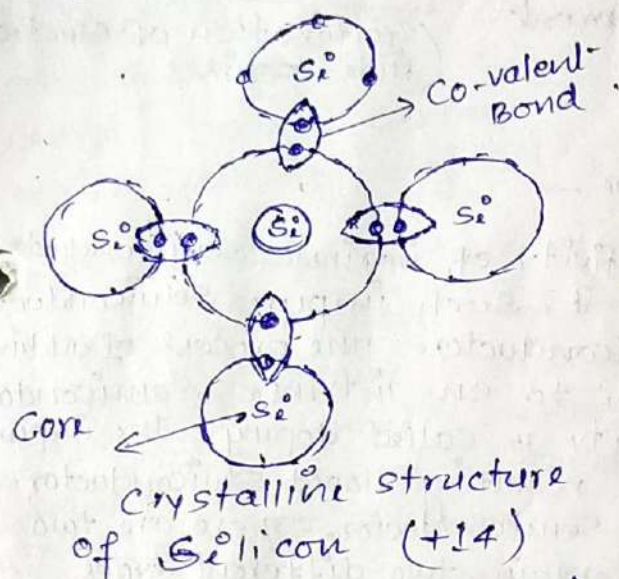 Si
Co-valent
Bond
Si
Si
Si
Si
Core
Crystalline structure
of Silicon (+14)